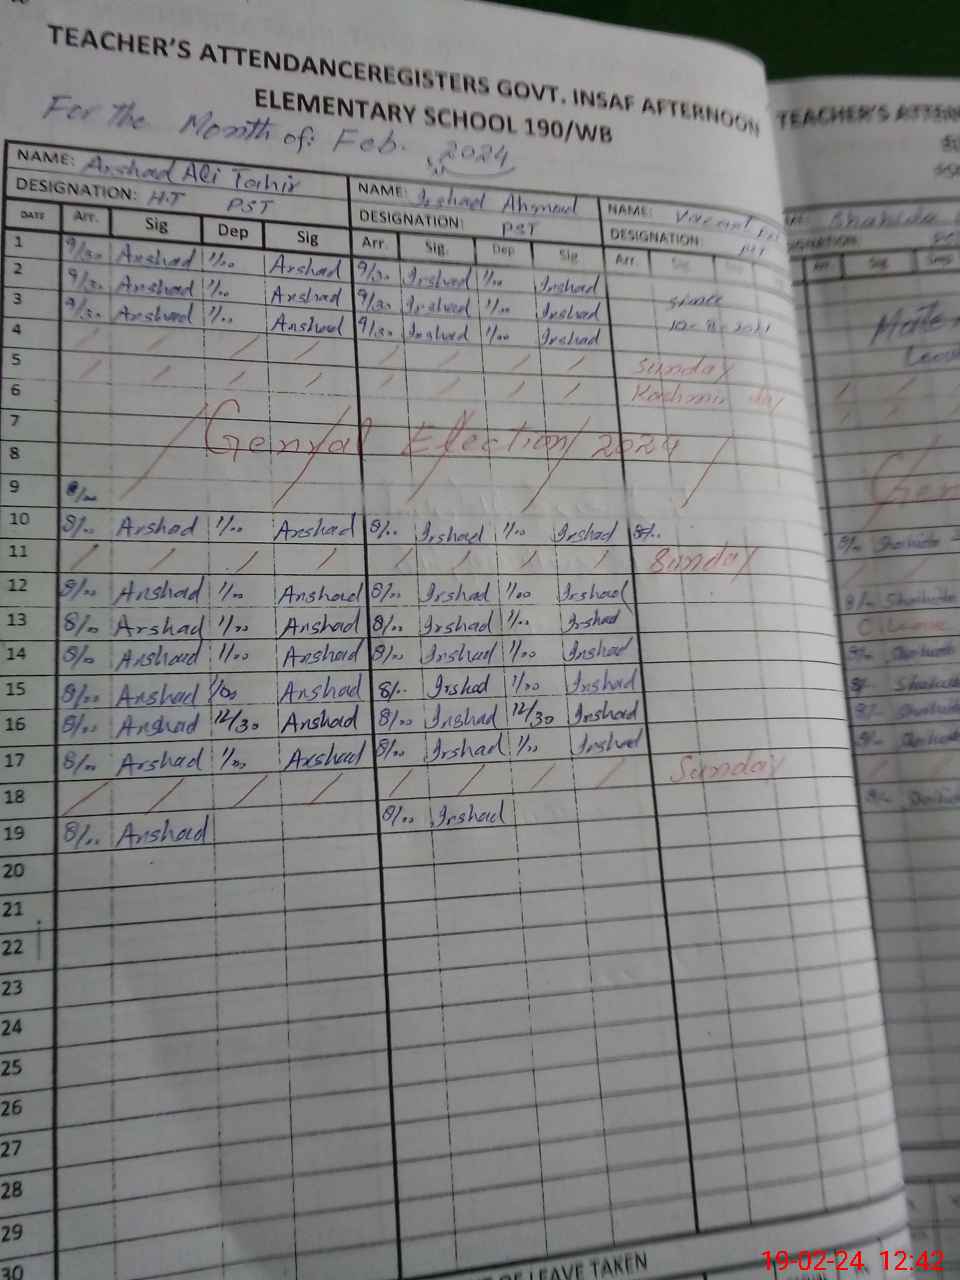 TEACHER'S ATTENDANCEREGISTERS GOVT. INSAF AFTERNOON
ELEMENTARY SCHOOL 190/WB
For the Month of: Feb. 2024
NAME: Arshad Ali Tahir NAME: Irshad Ahmad NAME:
DESIGNATION: H.T PST DESIGNATION: PST DESIGNATION:
DATE Arr. Sig Dep Sig Arr. Sig. Dep Sig Arr. Sig
1 9/30 Arshad 1/00 Arshad 9/30 Irshad 1/00 Irshad
2 9/30 Arshad 1/00 Arshad 9/30 Irshad 1/00 Irshad since
3 9/30 Arshad 1/00 Arshad 9/30 Irshad 1/00 Irshad
4 Sunday
5 Kashmir day
6
7 General Election 2024
8
9 8/00
10 8/00 Arshad 1/00 Arshad 8/00 Irshad 1/00 Irshad 8/00
11 Sunday
12 8/00 Arshad 1/00 Arshad 8/00 Irshad 1/00 Irshad
13 8/00 Arshad 1/00 Arshad 8/00 Irshad 1/00 Irshad
14 8/00 Arshad 1/00 Arshad 8/00 Irshad 1/00 Irshad
15 8/00 Arshad 1/00 Arshad 8/00 Irshad 1/00 Irshad
16 8/00 Arshad 12/30 Arshad 8/00 Irshad 12/30 Irshad
17 8/00 Arshad 1/00 Arshad 8/00 Irshad 1/00 Irshad
18 Sunday
19 8/00 Arshad 8/00 Irshad
20
21
22
23
24
25
26
27
28
29
30
OF LEAVE TAKEN
TEACHER'S
19-02-24 12:42